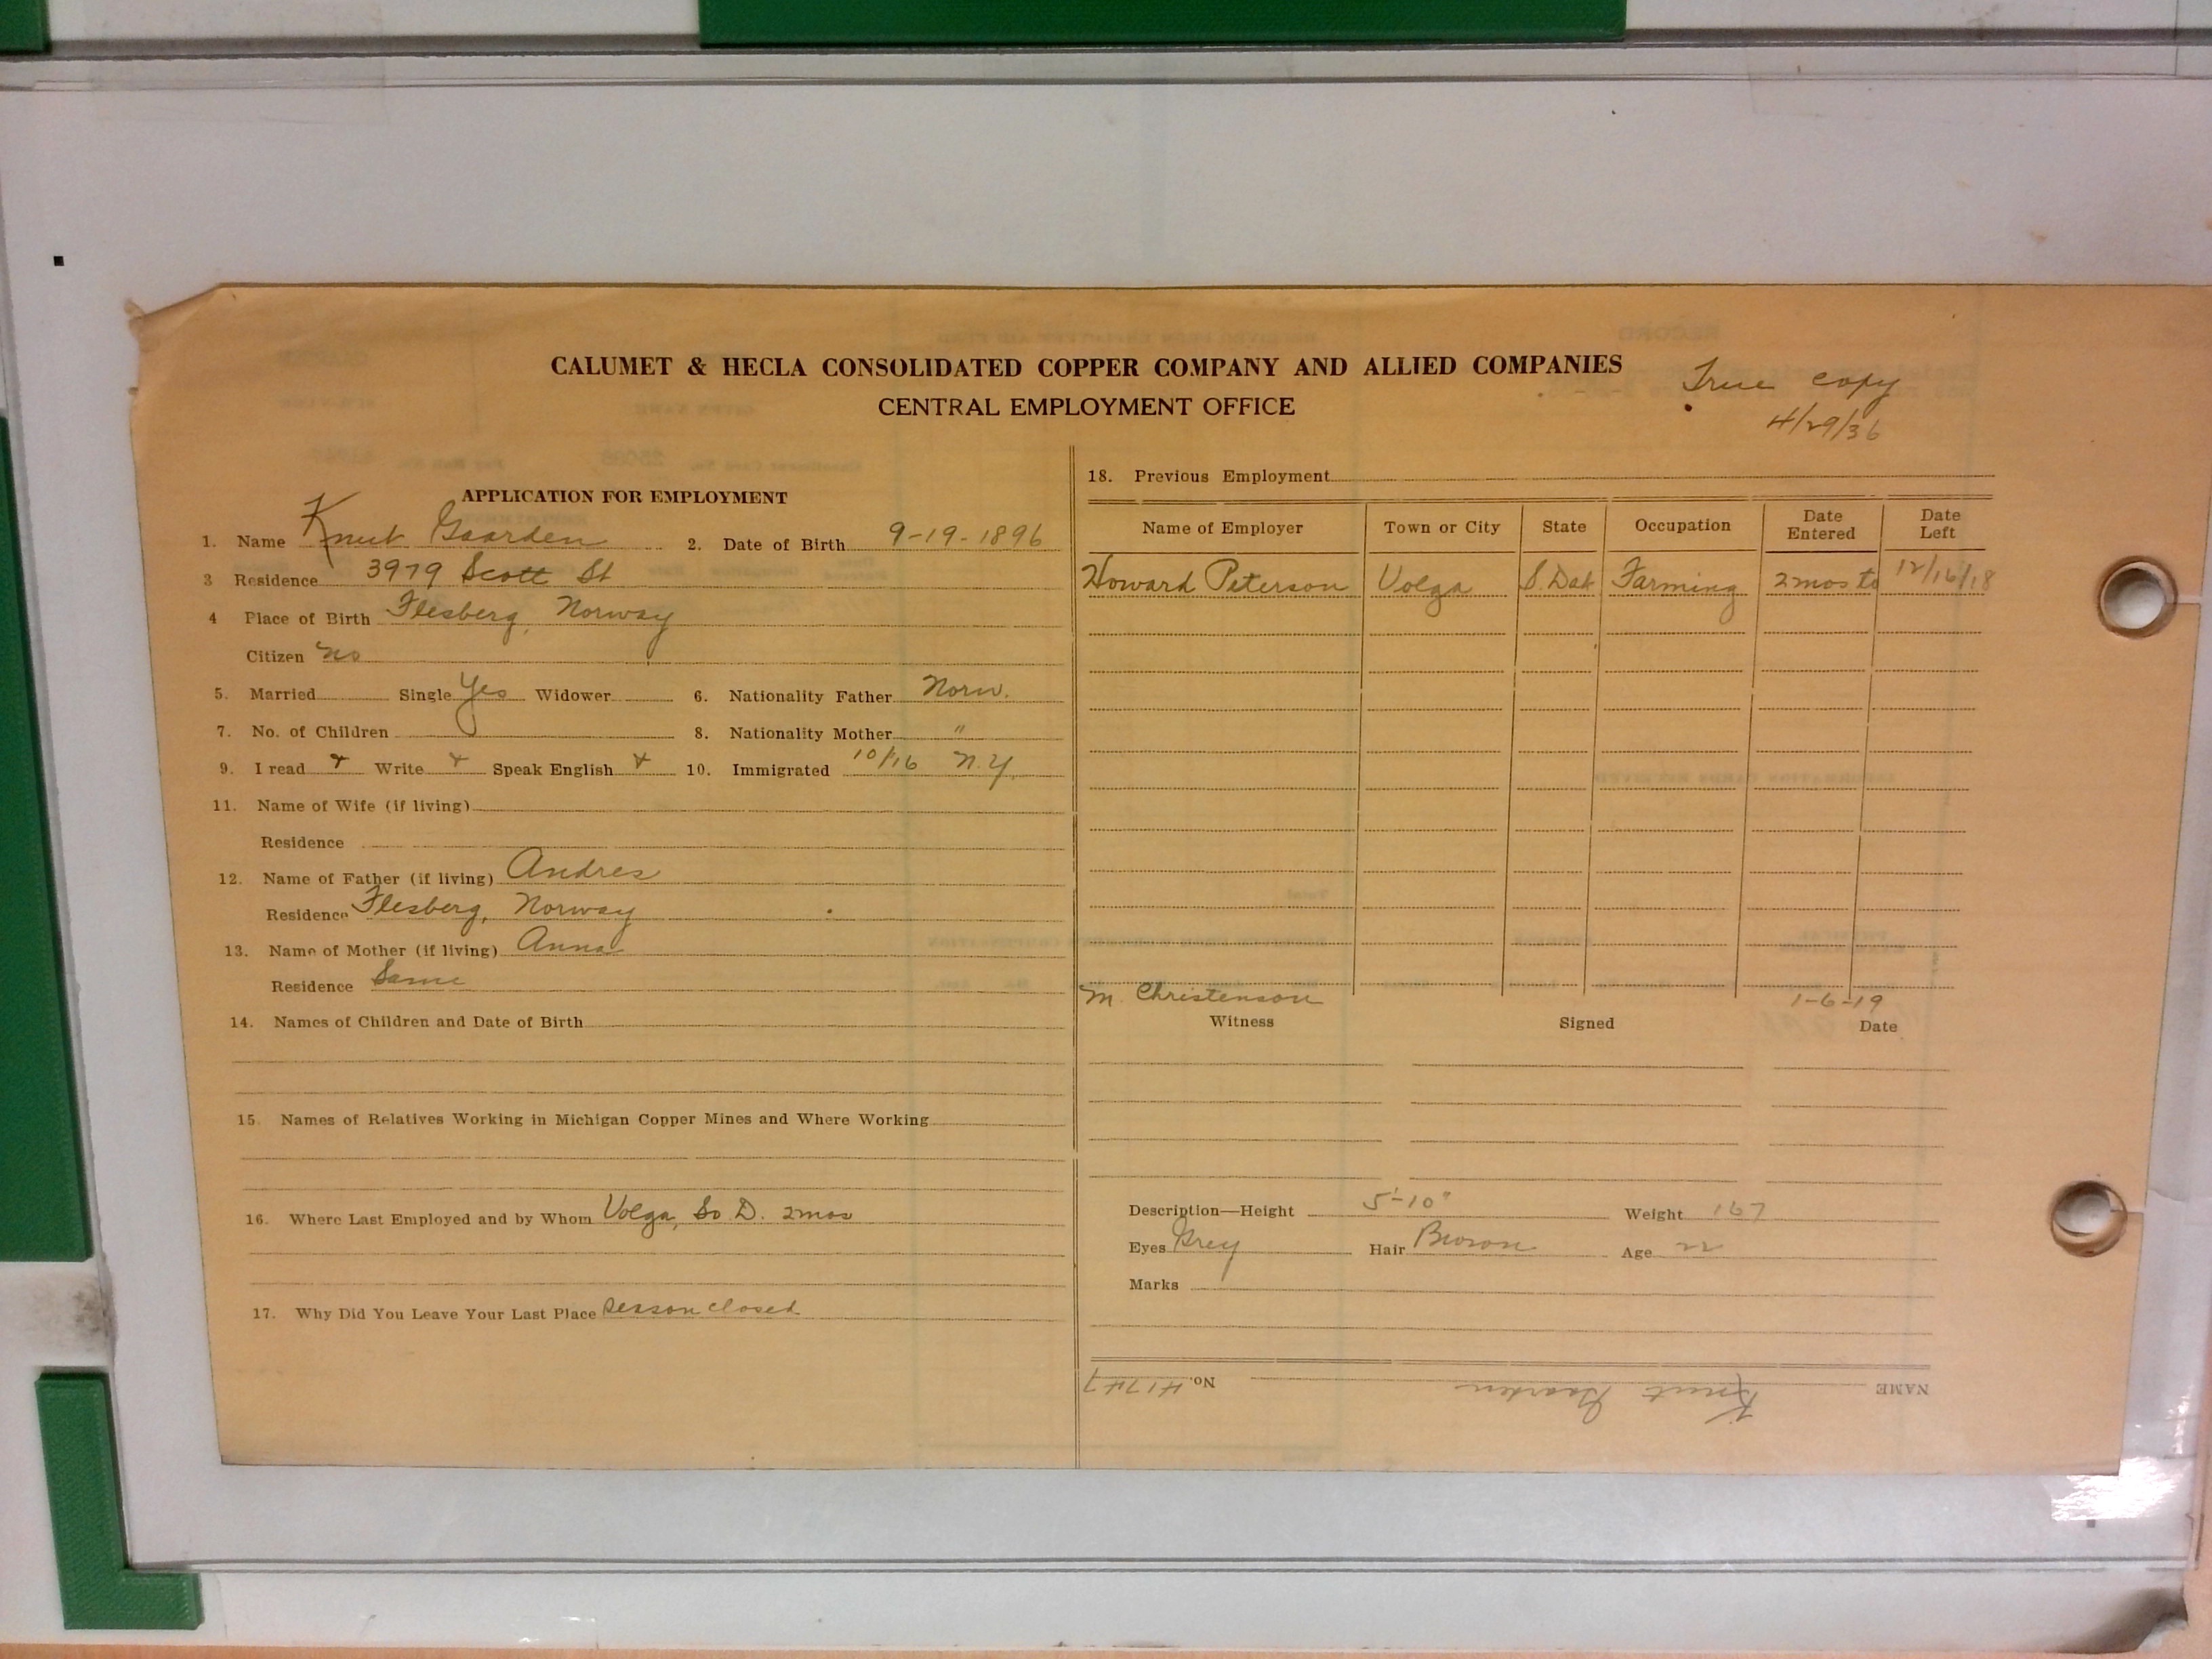 CALUMET & HECLA CONSOLIDATED COPPER COMPANY AND ALLIED COMPANIES
CENTRAL EMPLOYMENT OFFICE
True copy
4/29/36
APPLICATION FOR EMPLOYMENT
1. Name Knut Gaarden 2. Date of Birth 9-19-1896
3 Residence 3979 Scott St
4 Place of Birth Flesberg, Norway
Citizen no
5. Married Single Yes Widower 6. Nationality Father Norw.
7. No. of Children 8. Nationality Mother "
9. I read + Write + Speak English + 10. Immigrated 10/16 N.Y.
11. Name of Wife (if living)
Residence
12. Name of Father (if living) Andres
Residence Flesberg, Norway
13. Name of Mother (if living) Anna
Residence Same
14. Names of Children and Date of Birth
15. Names of Relatives Working in Michigan Copper Mines and Where Working
16. Where Last Employed and by Whom Volga, So D. 2mos
17. Why Did You Leave Your Last Place Season closed
18. Previous Employment
Name of Employer Town or City State Occupation Date Entered Date Left
Howard Peterson Volga S. Dak Farming 2mos to 12/16/18
M. Christenson 1-6-19
Witness Signed Date
Description—Height 5'-10" Weight 167
Eyes Grey Hair Brown Age 22
Marks
NAME Knut Gaarden No. 41747